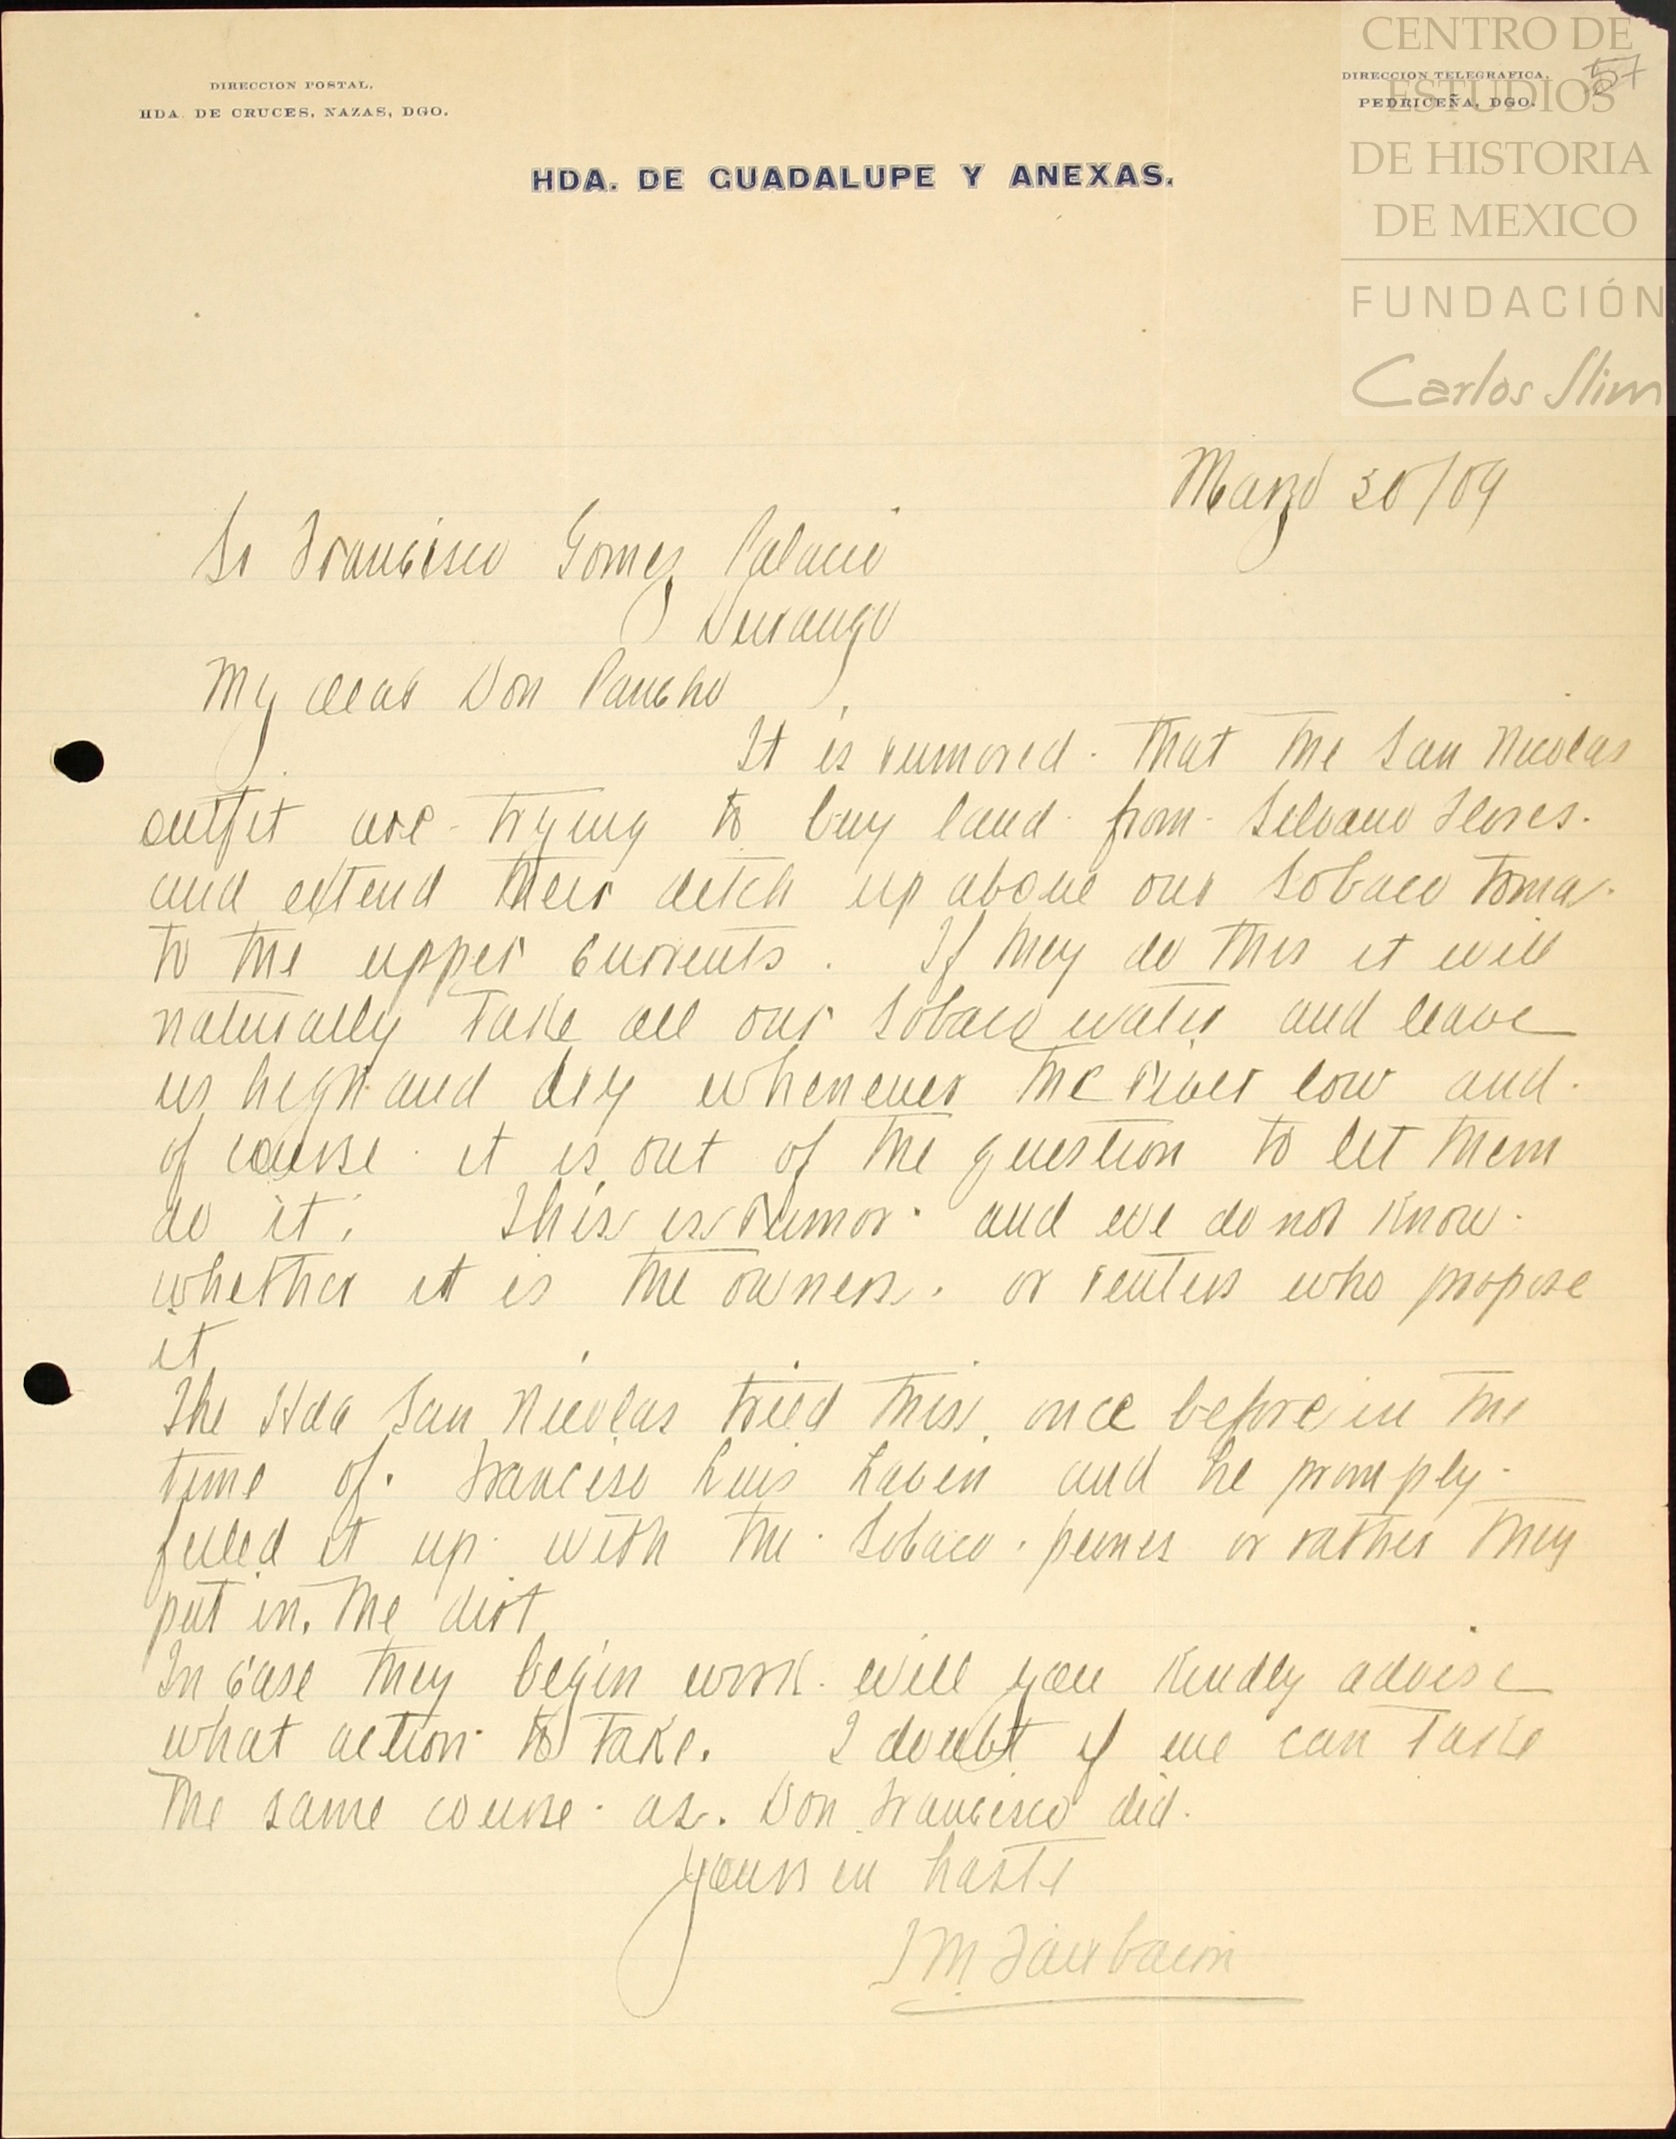 CENTRO DE
ESTUDIOS
DE HISTORIA
DE MEXICO
FUNDACIÓN
Carlos Slim
57
DIRECCION POSTAL.
HDA. DE CRUCES, NAZAS, DGO.
DIRECCION TELEGRAFICA.
PEDRICEÑA, DGO.
HDA. DE GUADALUPE Y ANEXAS.
Marzo 30/09
Sr Francisco Gomez Palacio
Durango
My dear Don Pancho
It is rumored that the San Nicolas
outfit are trying to buy land from Silvano Flores.
and extend their ditch up above our Sobaco toma
to the upper currents. If they do this it will
naturally take all our Sobaco water and leave
us high and dry whenever the river low and
of course it is out of the question to let them
do it. This is rumor and we do not know
whether it is the owners. or renters who propose
it
The Hda San Nicolas tried this once before in the
time of. Francisco Luis Lavin and he promply
filled it up with the Sobaco peones or rather they
put in. the dirt
In case they begin work will you kindly advise
what action to take. I doubt if we can take
the same course as. Don Francisco did.
yours in haste
Fairbairn